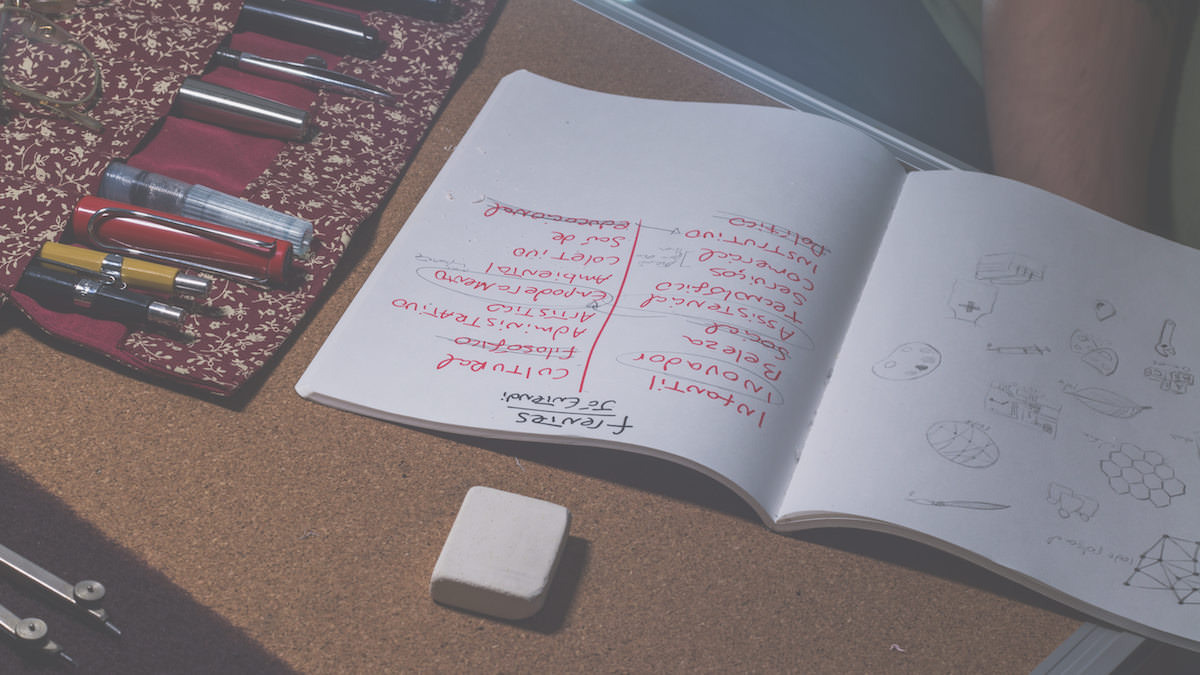 Frentes
Já Entendi:
Infantil
Inovador
Beleza
Social
Assistencial
Tecnológico
Serviços
Comercial
Instrutivo
Político
Cultural
Filosófico
Administrativo
Artístico
Enpoderamento
Ambiental
Coletivo
Saúde
Educacional